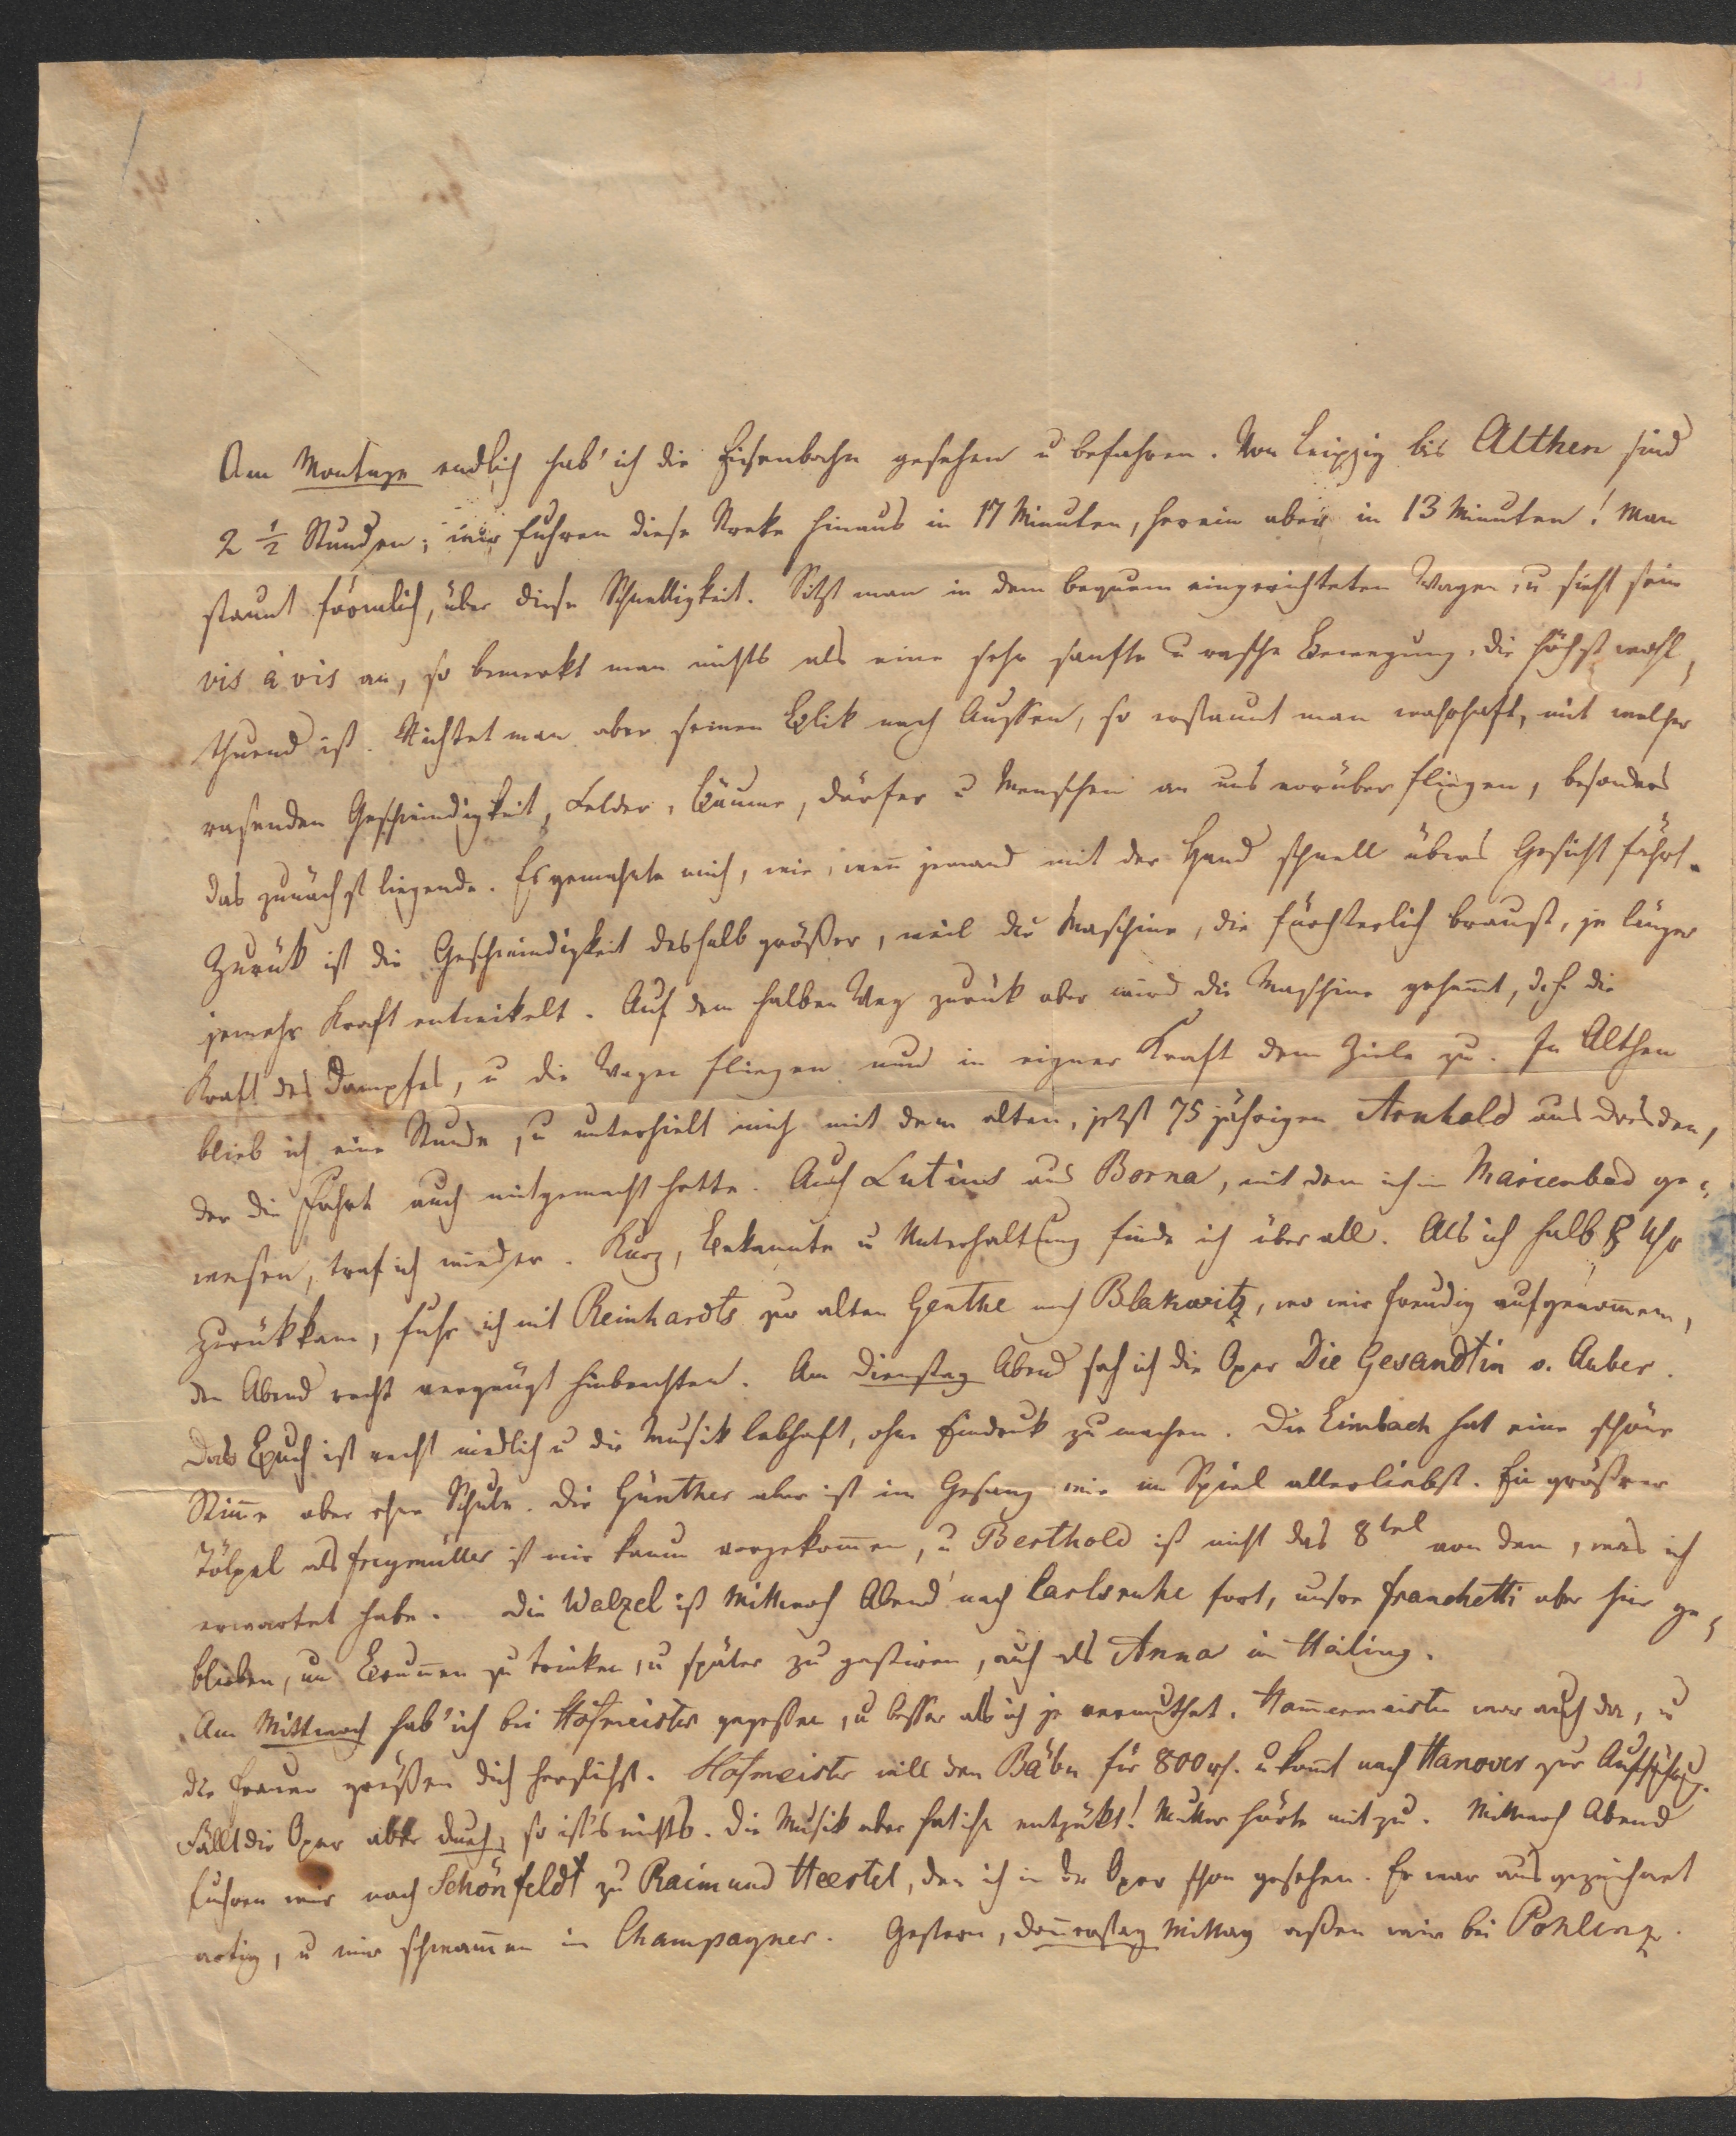 Am Montage endlich hab' ich die Eisenbahn gesehen u befahren. Von Leipzig bis Althen sind
2 ½ Stunden; wir fuhren diese Streke hinaus in 17 Minuten, herein aber in 13 Minuten! Man
staunt förmlich, über diese Schnelligkeit. Sitzt man in dem bequem eingerichteten Wagen, u sieht sein
vis à vis an, so bemerkt man nichts als eine sehr sanfte u rasche Bewegung, die höchst wohl-
thuend ist. Richtet man aber seinen Blik nach Aussen, so erstaunt man wahrhaft, mit welcher
rasenden Geschwindigkeit, Felder, Bäume, Dörfer u Menschen an uns vorüber fliegen, besonders
das zunächst liegende. Es gemahnte mich, wie, wen̄ jemand mit der Hand schnell übers Gesicht fährt.
Zurük ist die Geschwindigkeit deshalb größer, weil die Maschine, die fürchterlich braust, je länger
jemehr Kraft entwikelt. Auf dem halben Weg zurük aber wird die Maschine gehem̄t, d. h. die
Kraft des Dampfes, u die Wagen fliegen nun in eigner Kraft dem Ziele zu. In Althen
blieb ich eine Stunde, u unterhielt mich mit dem alten, jetzt 75 jährigen Arnhold aus Dresden,
der die Fahrt auch mitgemacht hatte. Auch Lutims aus Borna, mit dem ich in Marienbad ge-
wesen, traf ich wieder. Kurz, Bekannte u Unterhaltung finde ich über all. Als ich halb 8 Uhr
zurükkam, fuhr ich mit Reinhardts zur alten Genthe nach Blakwitz, wo wir freudig aufgenom̄en,
den Abend recht vergnügt hinbrachten. Am Dienstag Abend sah ich die Oper Die Gesandtin v. Auber.
Das Buch ist recht niedlich u die Musik lebhaft, ohne Eindruk zu machen. Die Limbach hat eine schöne
Stim̄e aber ohne Schule. Die Günther aber ist im Gesang wie im Spiel allerliebst. Ein größrer
Tölpel als Freymüller ist mir kaum vorgekom̄en, u Berthold ist nicht das 8tel von dem, was ich
erwartet habe. Die Walzel ist Mittwoch Abend nach Carlsruhe fort, unsre Franchetti aber hier ge-
blieben, um Brun̄en zu trinken, u später zu gastiren, auch als Anna in Heiling.
Am Mittwoch hab' ich bei Hofmeister gegeßen, u besser als ich je vermuthet. Ham̄ermeister war auch da, u
die Frauen grüßen dich herzlichst. Hofmeister will den Bäbu für 800 rh. u kom̄t nach Hanover zur Aufführung.
Fällt die Oper aber durch, so ist's nichts. Die Musik aber hat ihn entzükt! Mutter hörte mit zu. Mittwoch Abend
fuhren wir nach Schönfeldt zu Raimund Heertel, den ich in der Oper schon gesehen. Er war ausgezeichnet
artig, u wir schwam̄en in Champagner. Gestern, Don̄erstag Mittag aßen wir bei Pohlenz.